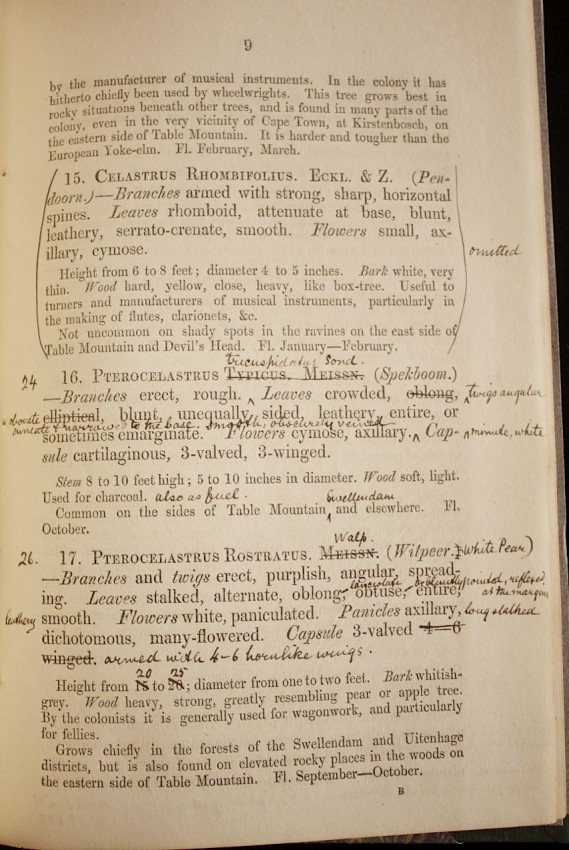 9
by the manufacturer of musical instruments. In the colony it has
hitherto chiefly been used by wheelwrights. This tree grows best in
rocky situations beneath other trees, and is found in many parts of the
colony, even in the very vicinity of Cape Town, at Kirstenbosch, on
the eastern side of Table Mountain. It is harder and tougher than the
European Yoke-elm. Fl. February, March.
15. CELASTRUS RHOMBIFOLIUS. ECKL. & Z. (Pen-
doorn.)—Branches armed with strong, sharp, horizontal
spines. Leaves rhomboid, attenuate at base, blunt,
leathery, serrato-crenate, smooth. Flowers small, ax-
illary, cymose.
omitted
Height from 6 to 8 feet; diameter 4 to 5 inches. Bark white, very
thin. Wood hard, yellow, close, heavy, like box-tree. Useful to
turners and manufacturers of musical instruments, particularly in
the making of flutes, clarionets, &c.
Not uncommon on shady spots in the ravines on the east side of
Table Mountain and Devil's Head. Fl. January—February.
tricuspidatus Sond.
24
16. PTEROCELASTRUS TYPICUS. MEISSN. (Spekboom.)
—Branches erect, rough. Leaves crowded, oblong, twigs angular
obovate elliptical, blunt, unequally sided, leathery, entire, or
cuneate & narrowed to the base. smooth, obscurely veined
sometimes emarginate. Flowers cymose, axillary. Cap- minute, white
sule cartilaginous, 3-valved, 3-winged.
Stem 8 to 10 feet high; 5 to 10 inches in diameter. Wood soft, light.
Used for charcoal. also as fuel.
Swellendam
Common on the sides of Table Mountain and elsewhere. Fl.
October.
Walp.
26.
17. PTEROCELASTRUS ROSTRATUS. MEISSN. (Witpeer.) White Pear)
—Branches and twigs erect, purplish, angular, spread-
lanceolate pointed, reflexed
ing. Leaves stalked, alternate, oblong, obtuse, entire, at the margin
leathery smooth. Flowers white, paniculated. Panicles axillary, long stalked
dichotomous, many-flowered. Capsule 3-valved 4—6
winged. armed with 4-6 hornlike wings.
20 25
Height from 15 to 20; diameter from one to two feet. Bark whitish-
grey. Wood heavy, strong, greatly resembling pear or apple tree.
By the colonists it is generally used for wagonwork, and particularly
for fellies.
Grows chiefly in the forests of the Swellendam and Uitenhage
districts, but is also found on elevated rocky places in the woods on
the eastern side of Table Mountain. Fl. September—October.
B